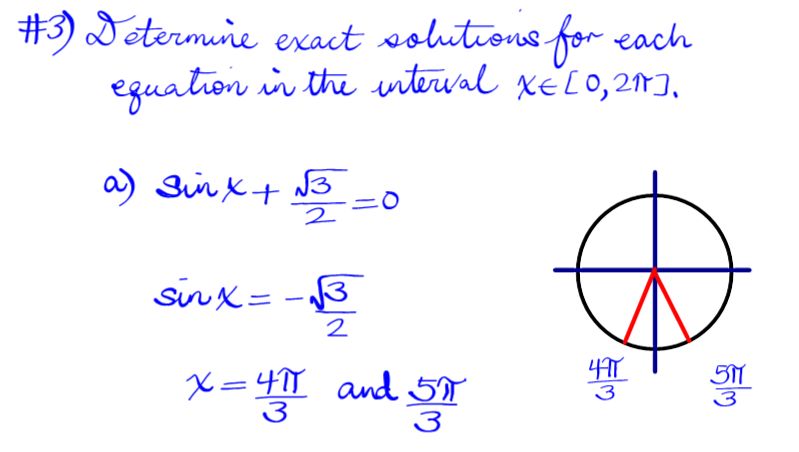 #3) Determine exact solutions for each
equation in the interval x∈[0,2π].
a) sin x + √3/2 = 0
sin x = -√3/2
x = 4π/3 and 5π/3
4π/3
5π/3